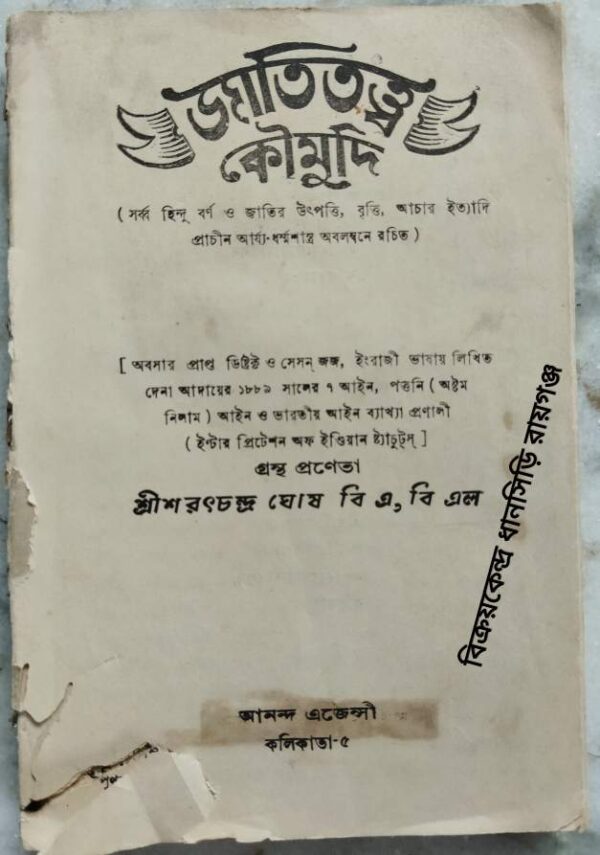 জাতিতত্ত্ব
কৌমুদি
( সর্ব্ব হিন্দু বর্ণ ও জাতির উৎপত্তি, বৃত্তি, আচার ইত্যাদি
প্রাচীন আর্য্য-ধর্ম্মশাস্ত্র অবলম্বনে রচিত )
[ অবসার প্রাপ্ত ডিষ্ট্রিক্ট ও সেসন্ জজ, ইংরাজী ভাষায় লিখিত
দেনা আদায়ের ১৮৮৯ সালের ৭ আইন, পত্তনি ( অষ্টম
নিলাম ) আইন ও ভারতীয় আইন ব্যাখ্যা প্রণালী
( ইন্টার প্রিটেশন অফ ইণ্ডিয়ান ষ্ট্যাচুটস্ ]
গ্রন্থ প্রণেতা
শ্রীশরৎচন্দ্র ঘোষ বি এ, বি এল
বিক্রয়কেন্দ্র ধানসিড়ি রায়গঞ্জ
আনন্দ এজেন্সী
কলিকাতা-৫